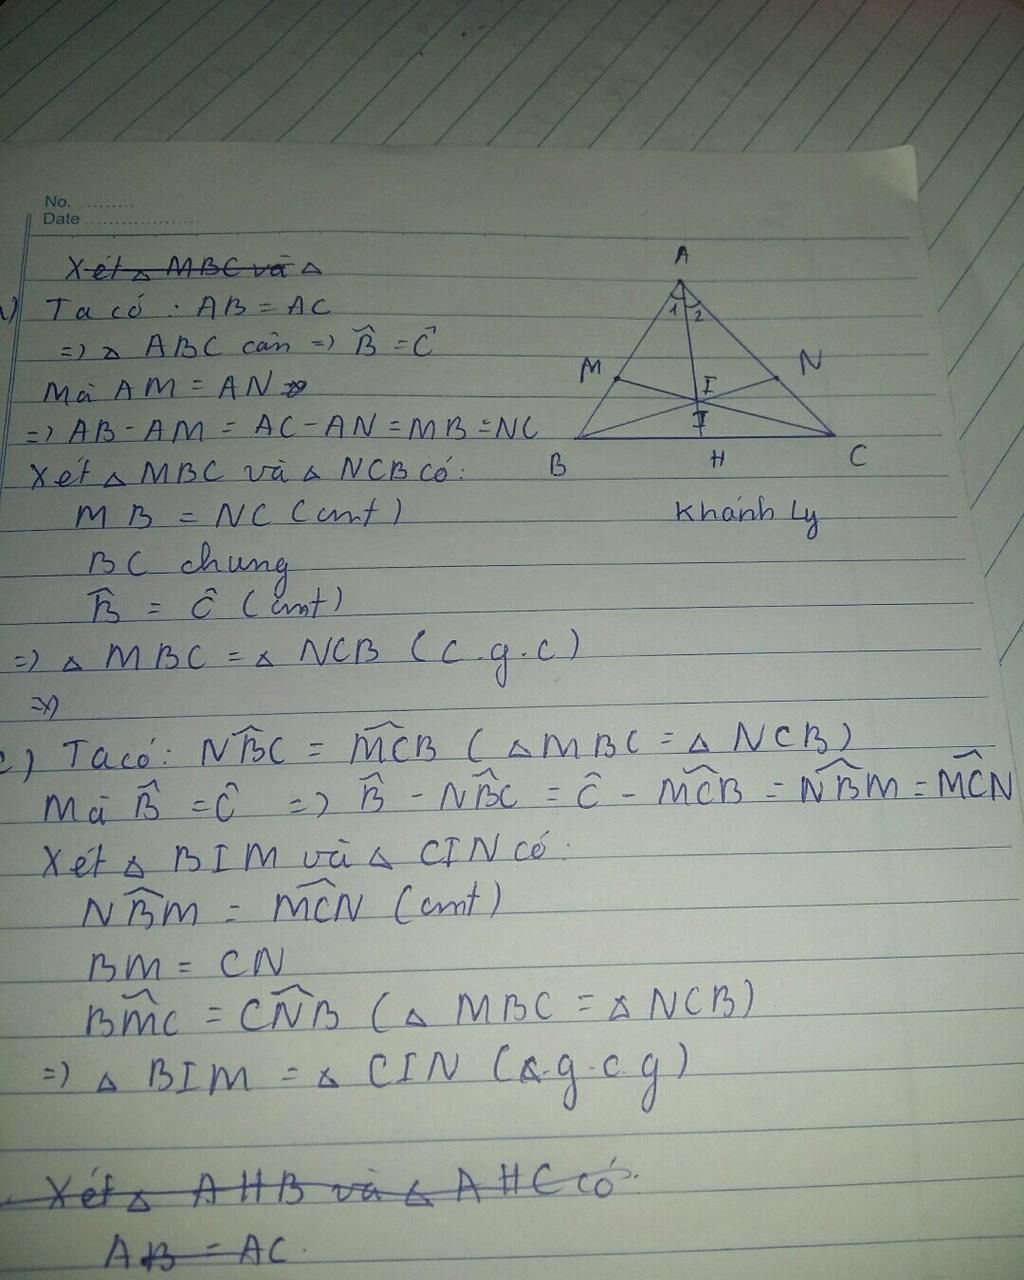 No. ..........
Date .....................
Xét △ MBC và △
Ta có : AB = AC
=) △ ABC cân =) B̂ = Ĉ
Mà AM = AN
=) AB - AM = AC - AN = MB = NC
Xét △ MBC và △ NCB có:
MB = NC (cmt)
BC chung
B̂ = Ĉ (cmt)
=) △ MBC = △ NCB (c.g.c)
=)
c) Ta có: NB̂C = MĈB (△ MBC = △ NCB)
Mà B̂ = Ĉ =) B̂ - NB̂C = Ĉ - MĈB = NB̂M = MĈN
Xét △ BIM và △ CIN có:
NB̂M = MĈN (cmt)
BM = CN
BM̂C = CN̂B (△ MBC = △ NCB)
=) △ BIM = △ CIN (g.c.g)
Xét △ AHB và △ AHC có:
AB = AC.
A
1 2
M N
I
B H C
Khánh Ly